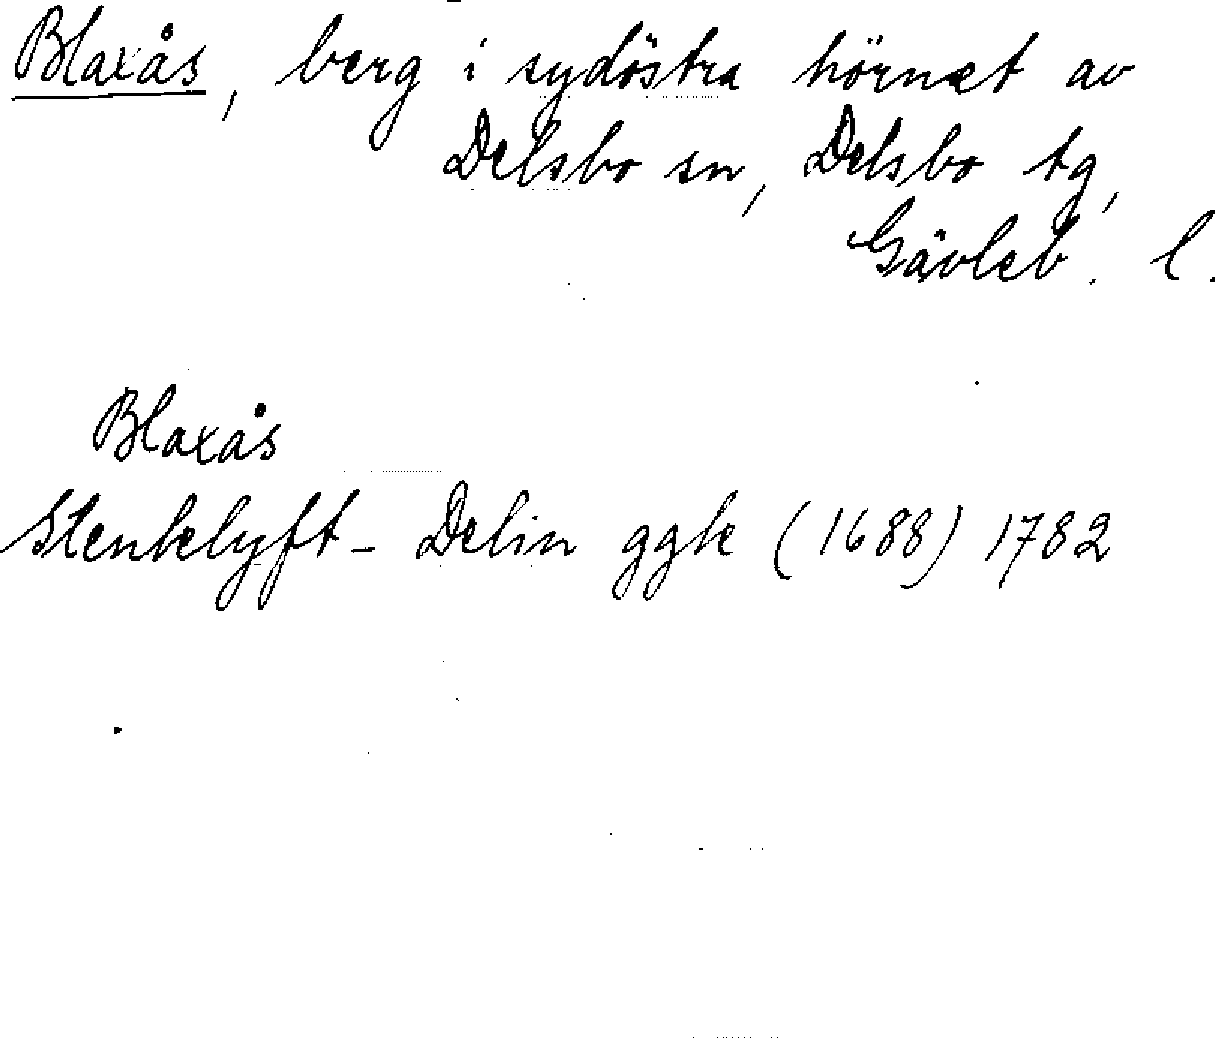 Blaxås, berg i sydöstra hörnet av
Delsbo sn, Delsbo tg,
Gävleb. l.
Blaxås
Stenklyft- Delin ggk (1688) 1782